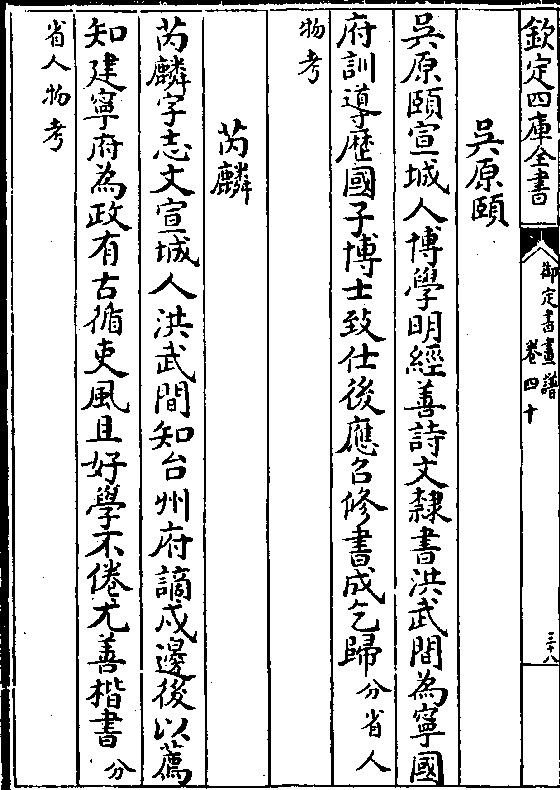 欽定四庫全書
御定書畫譜
卷四十
三十八
吳原頤
吳原頤宣城人博學明經善詩文隸書洪武間為寧國
府訓導歷國子博士致仕後應召修書成乞歸分省人
物考
芮麟
芮麟字志文宣城人洪武間知台州府謫戍邊後以薦
知建寧府為政有古循吏風且好學不倦尤善楷書分
省人物考